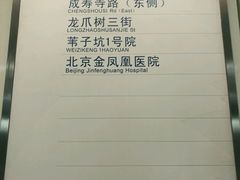 成寿寺路（东侧）
CHENGSHOUSI Rd (East)
龙爪树三街
LONGZHAOSHUSANJIE SI
苇子坑1号院
WEIZIKENG 1HAOYUAN
北京金凤凰医院
Beijing Jinfenghuang Hospital